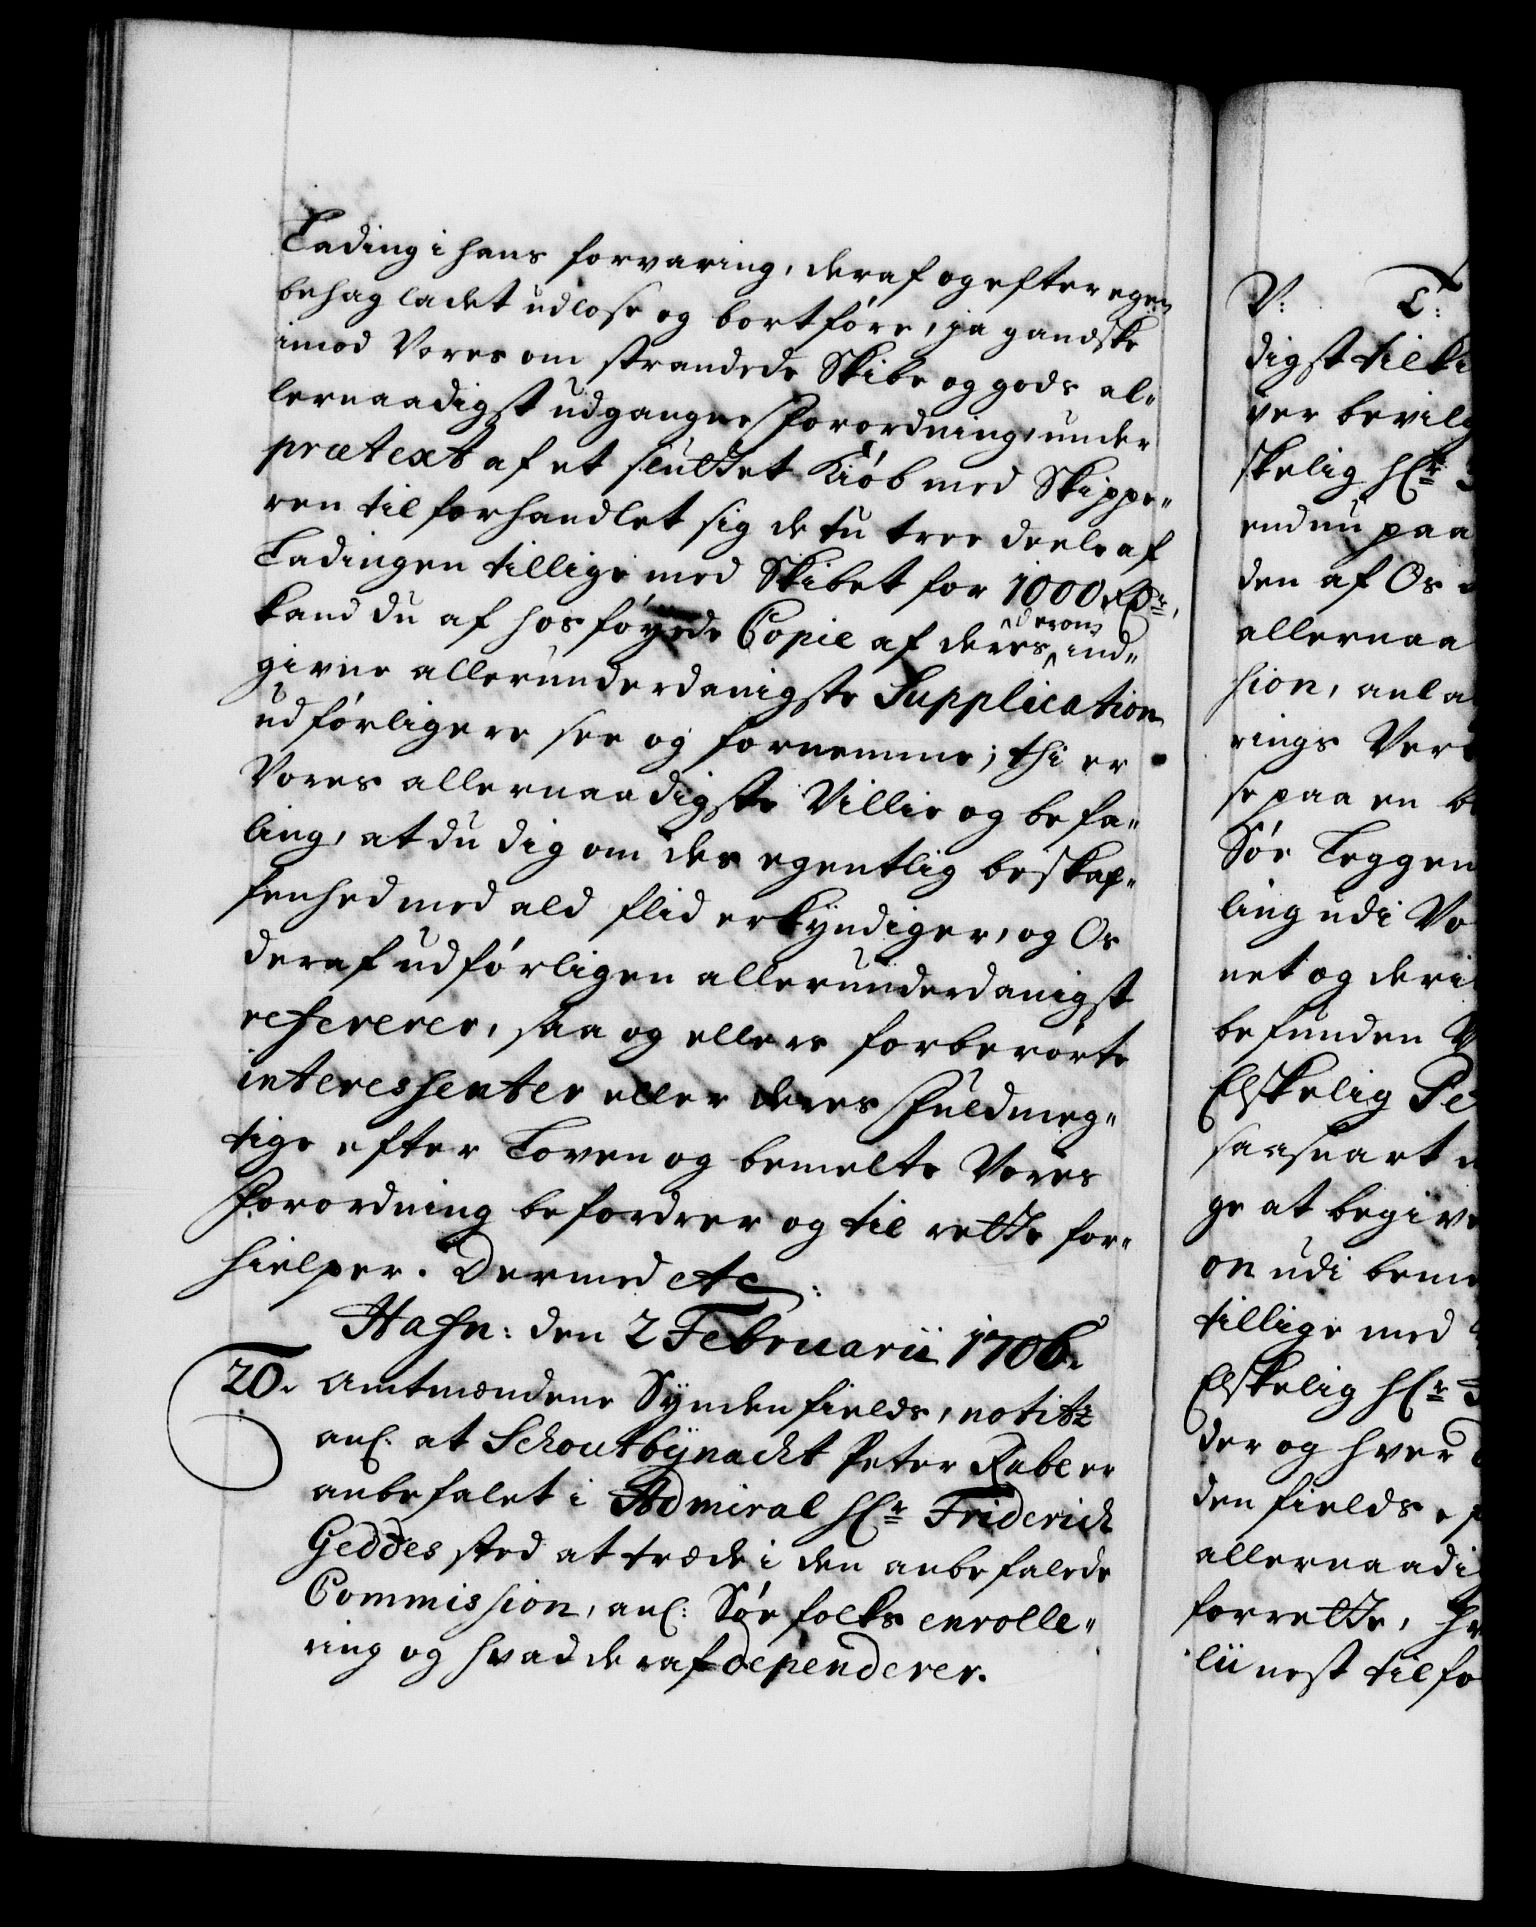 Lading i hans forvaring, deraf og efter egen
behag ladet udlose og bortføre, ja gandske
imod Vores om strandede Skibe og gods al-
lernaadigst udgangne Forordning, under
prætext af et sluttet Kiøb med Skippe-
ren tilforhandlet sig de tu tree deele af
Ladingen tillige med Skibet for 1000 Rdr,
kand du af hosføyede Copie af deres derom ind-
givne allerunderdanigste Supplication
udførligere see og fornemme; thi er
Vores allernaadigste Villie og befa-
ling, at du dig om des egentlig beskaf-
fenhed med ald flid erkyndiger, og Os
deraf udførligen allerunderdanigst
refererer, saa og ellers forberørte
interessenter eller deres Fuldmeg-
tige efter Loven og bemelte Vores
Forordning befordrer og til rette for-
hielper. Dermed etc:
Hafn: den 2 Februarii 1706.
20. Amtmændene Synden fields, notitz
anl. at Schoutbynacht Peter Rabe er
anbefalet i Admiral Hr Friderich
Geddes sted at træde i den anbefalede
Commission, anl: Søe folks enrolle-
ring og hvad deraf dependerer.
V: L:
digst tilki
ver bevilg
skelig Hr
endnu paa
den af Os
allernaa
sion, anla
rings Ver
se paa en b
Søe Leggen
ling udi Vo
net og deri
befunden V
Elskelig Pe
saasnart
ge at begive
on udi beme
tillige med
Elskelig Hr
der og hver
den fields,
allernaadi
forrette,
lii nest tilfo